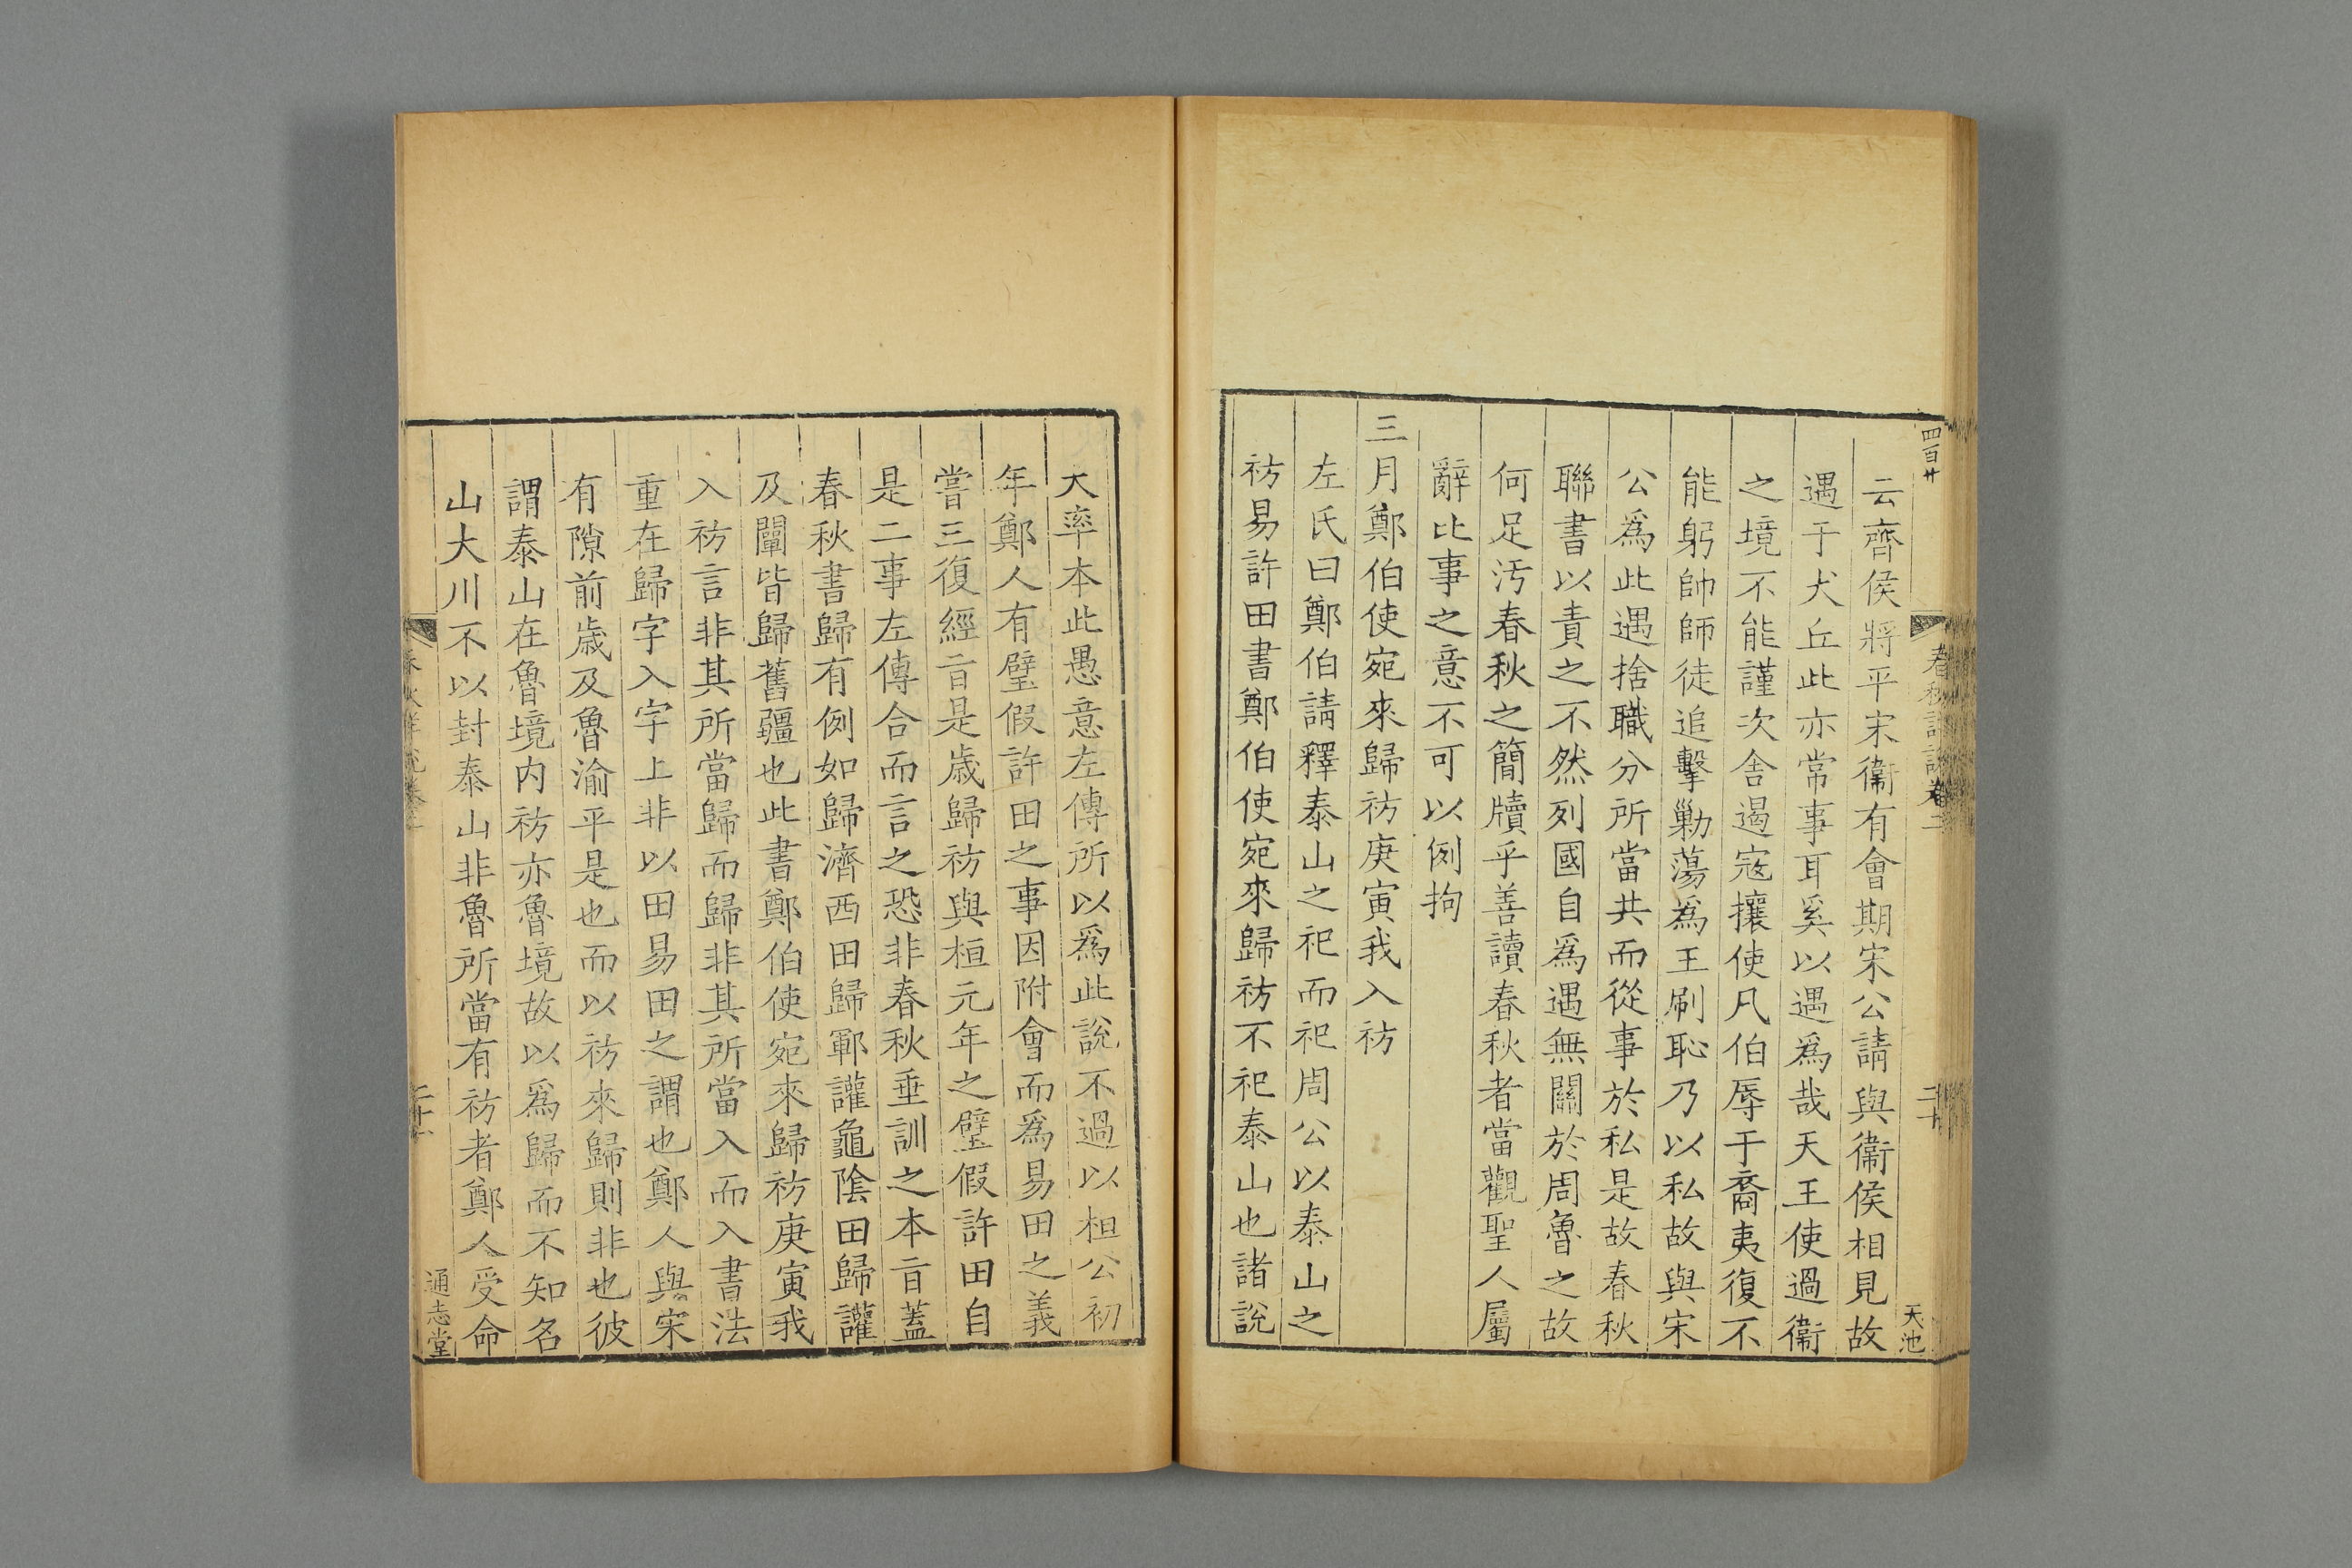 四百廿
春秋詳說卷二
二十
天池
云齊侯將平宋衞有會期宋公請與衞侯相見故
遇于犬丘此亦常事耳奚以遇爲哉天王使過衞
之境不能謹次舍遏寇攘使凡伯辱于裔夷復不
能躬帥師徒追擊勦蕩爲王刷恥乃以私故與宋
公爲此遇捨職分所當共而從事於私是故春秋
聯書以責之不然列國自爲遇無關於周魯之故
何足汚春秋之簡牘乎善讀春秋者當觀聖人屬
辭比事之意不可以例拘
三月鄭伯使宛來歸祊庚寅我入祊
左氏曰鄭伯請釋泰山之祀而祀周公以泰山之
祊易許田書鄭伯使宛來歸祊不祀泰山也諸說
大率本此愚意左傳所以爲此說不過以桓公初
年鄭人有璧假許田之事因附會而爲易田之義
嘗三復經旨是歳歸祊與桓元年之璧假許田自
是二事左傳合而言之恐非春秋垂訓之本旨蓋
春秋書歸有例如歸濟西田歸鄆讙龜陰田歸讙
及闡皆歸舊疆也此書鄭伯使宛來歸祊庚寅我
入祊言非其所當歸而歸非其所當入而入書法
重在歸字入字上非以田易田之謂也鄭人與宋
有隙前歳及魯渝平是也而以祊來歸則非也彼
謂泰山在魯境内祊亦魯境故以爲歸而不知名
山大川不以封泰山非魯所當有祊者鄭人受命
春秋詳說卷二
通志堂